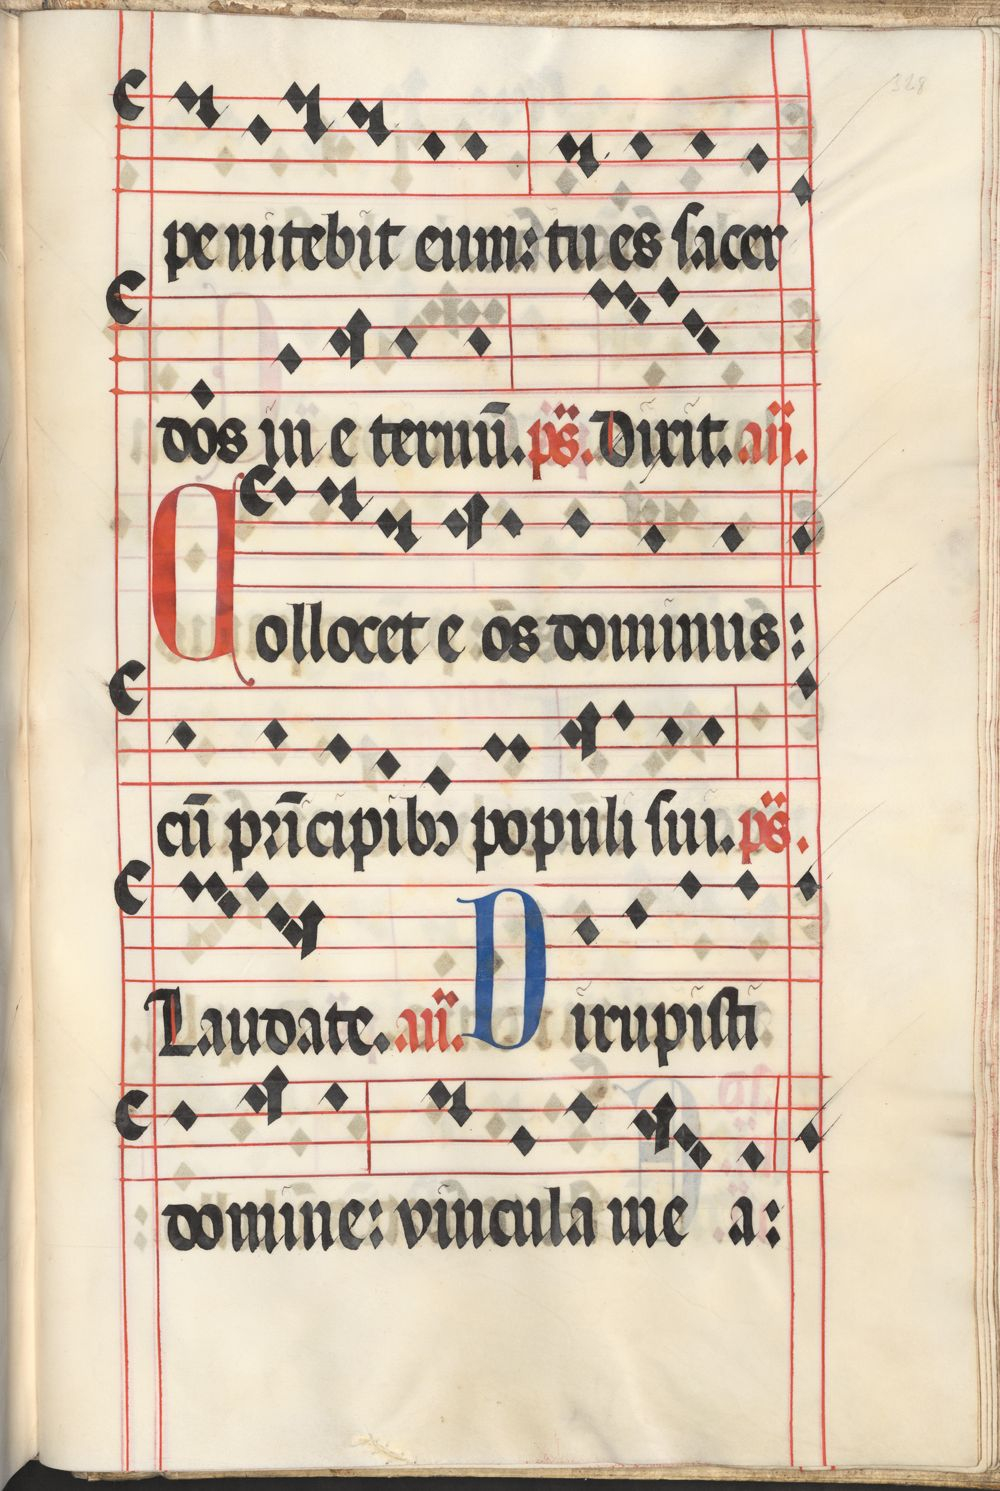 328
penitebit eum: tu es sacer
dos in e ternū. ps. Dixit. añ.
Collocet e os dominus:
cū prīcipibꝰ populi sui. ps.
Laudate. añ. Dirupisti
domine: vincula me a: